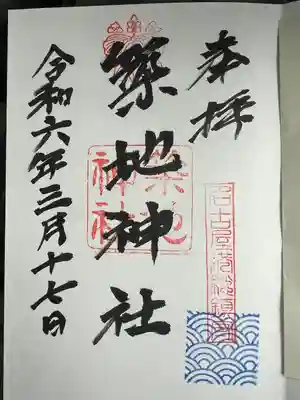 奉拝
名古屋港総鎮守
築地神社
築地
神社
令和六年三月十七日